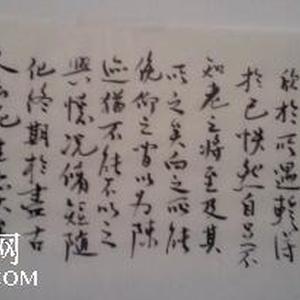 欣於所遇暫得
於己快然自足不
知老之將至及其
所之矣向之所
俛仰之間以為陳
迹猶不能不以之
興懷況脩短隨
化終期於盡古
人云死生亦大
网